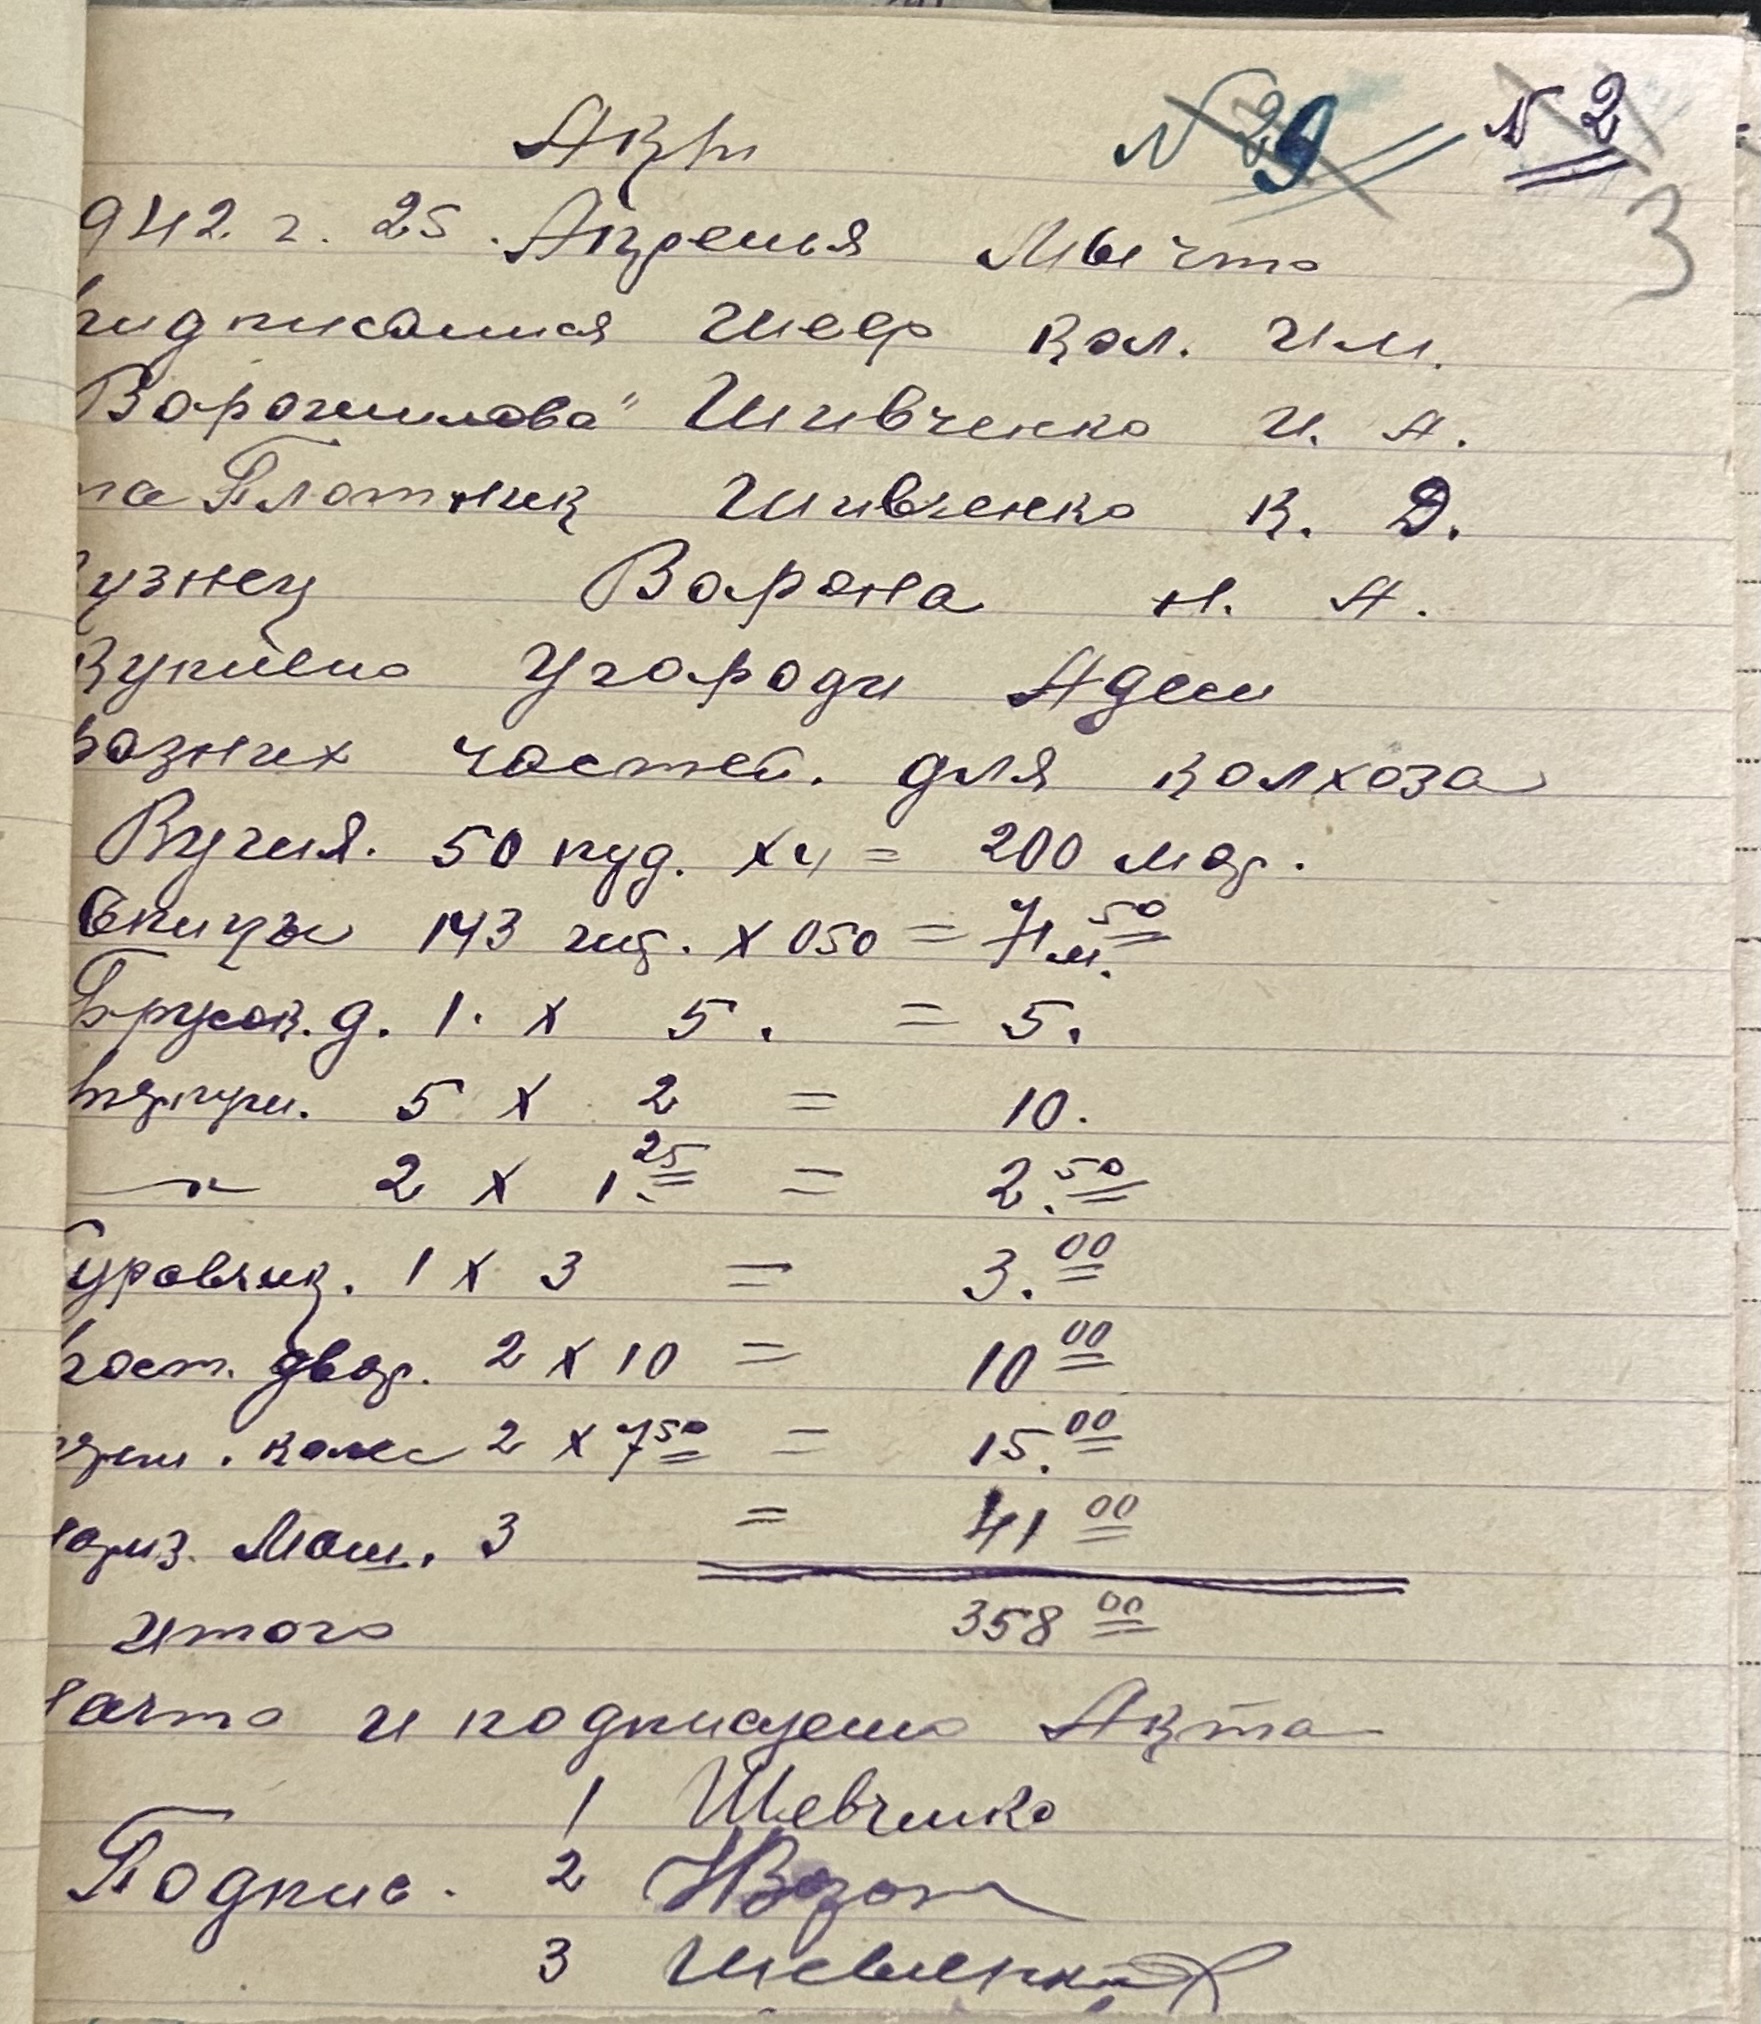 Акт
№ 29
№ 2
3
942 г. 25. Апреля Мы что
нидписаиия Шеф кол. им.
Ворошилова" Шивченко И. А.
та Плотник Шивченко К. Д.
узнец Варона Н. А.
Купиено У городи Адеси
разних частей. для колхоза
Вугия. 50 пуд. х 4 = 200 мар.
Спицы 143 шт. х 050 = 71 м. 50
Брусок. д. 1. х 5. = 5.
5 х 2 = 10.
—"— 2 х 1.25 = 2.50
уравчик. 1 х 3 = 3.00
двар. 2 х 10 = 10 00
колес 2 х 7 50 = 15.00
Маш. 3 = 41 00
итого 358 00
начто и подписуемо Акта
1 Шевченко
Подпис. 2 НВарона
3 Шевченко